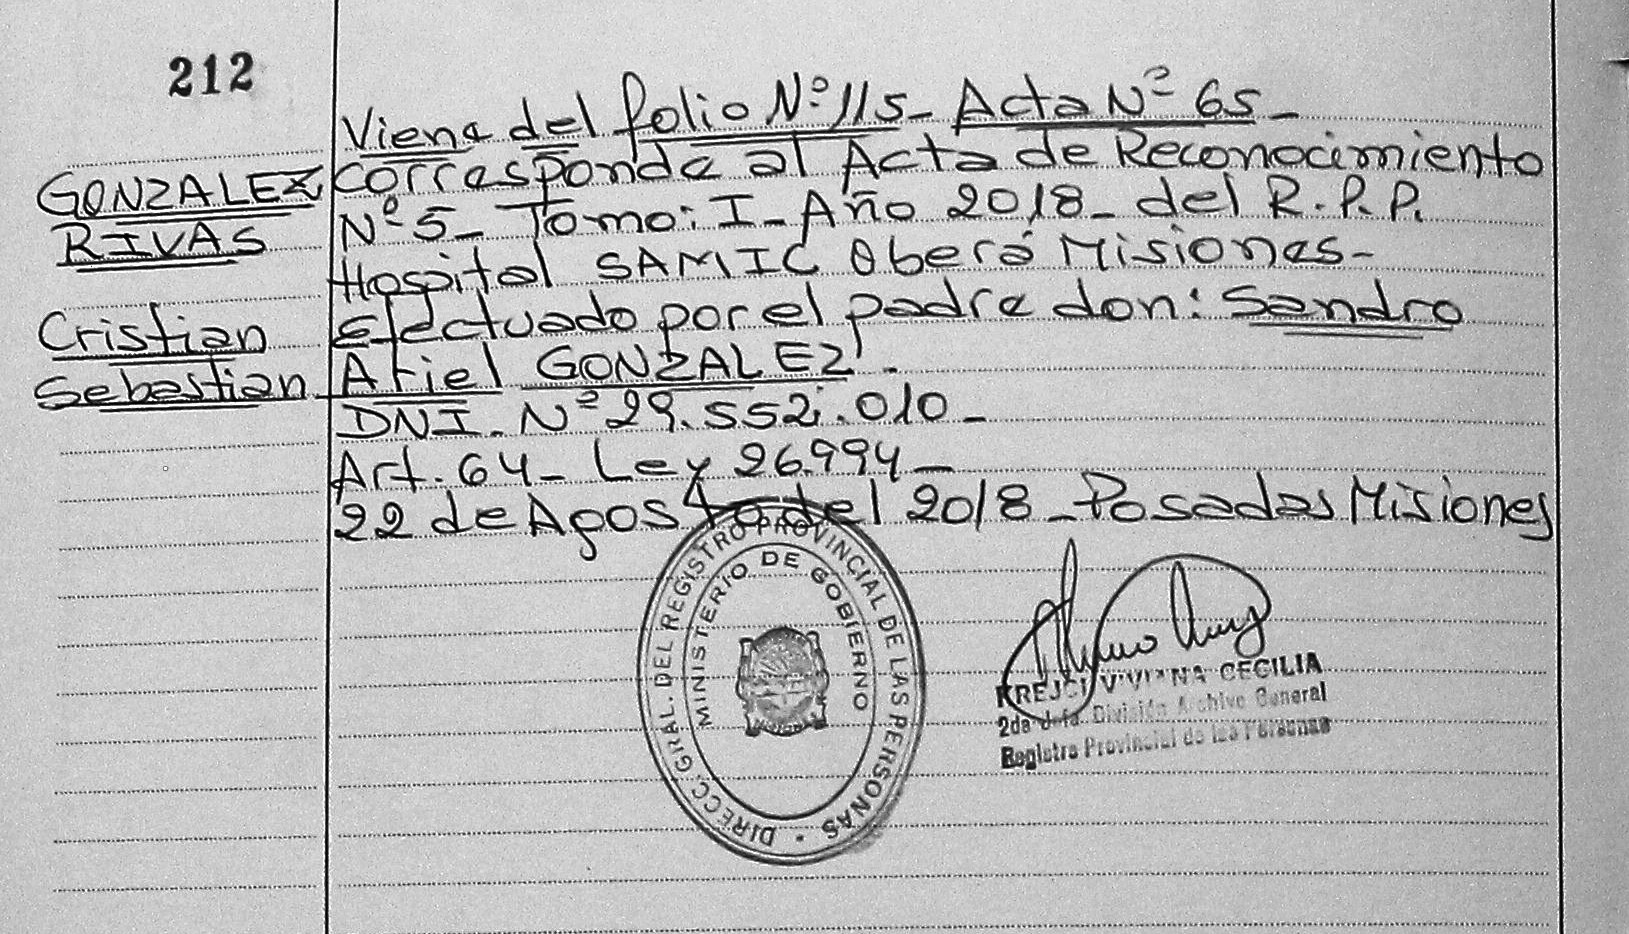 212
GONZALEZ
RIVAS
Cristian
Sebastian
Viene del folio Nº 115- Acta Nº 65-
corresponde al Acta de Reconocimiento
Nº 5- Tomo: I- Año 2018- del R.P.P.
Hospital SAMIC Oberá Misiones-
Efectuado por el padre don: Sandro
Ariel GONZALEZ.
DNI. Nº 29.552.010-
Art. 64- Ley 26.994-
22 de Agosto del 2018- Posadas Misiones
DIRECC. GRAL. DEL REGISTRO PROVINCIAL DE LAS PERSONAS
MINISTERIO DE GOBIERNO
KREJCI VIVIANA CECILIA
2da Jefa División Archivo General
Registro Provincial de las Personas